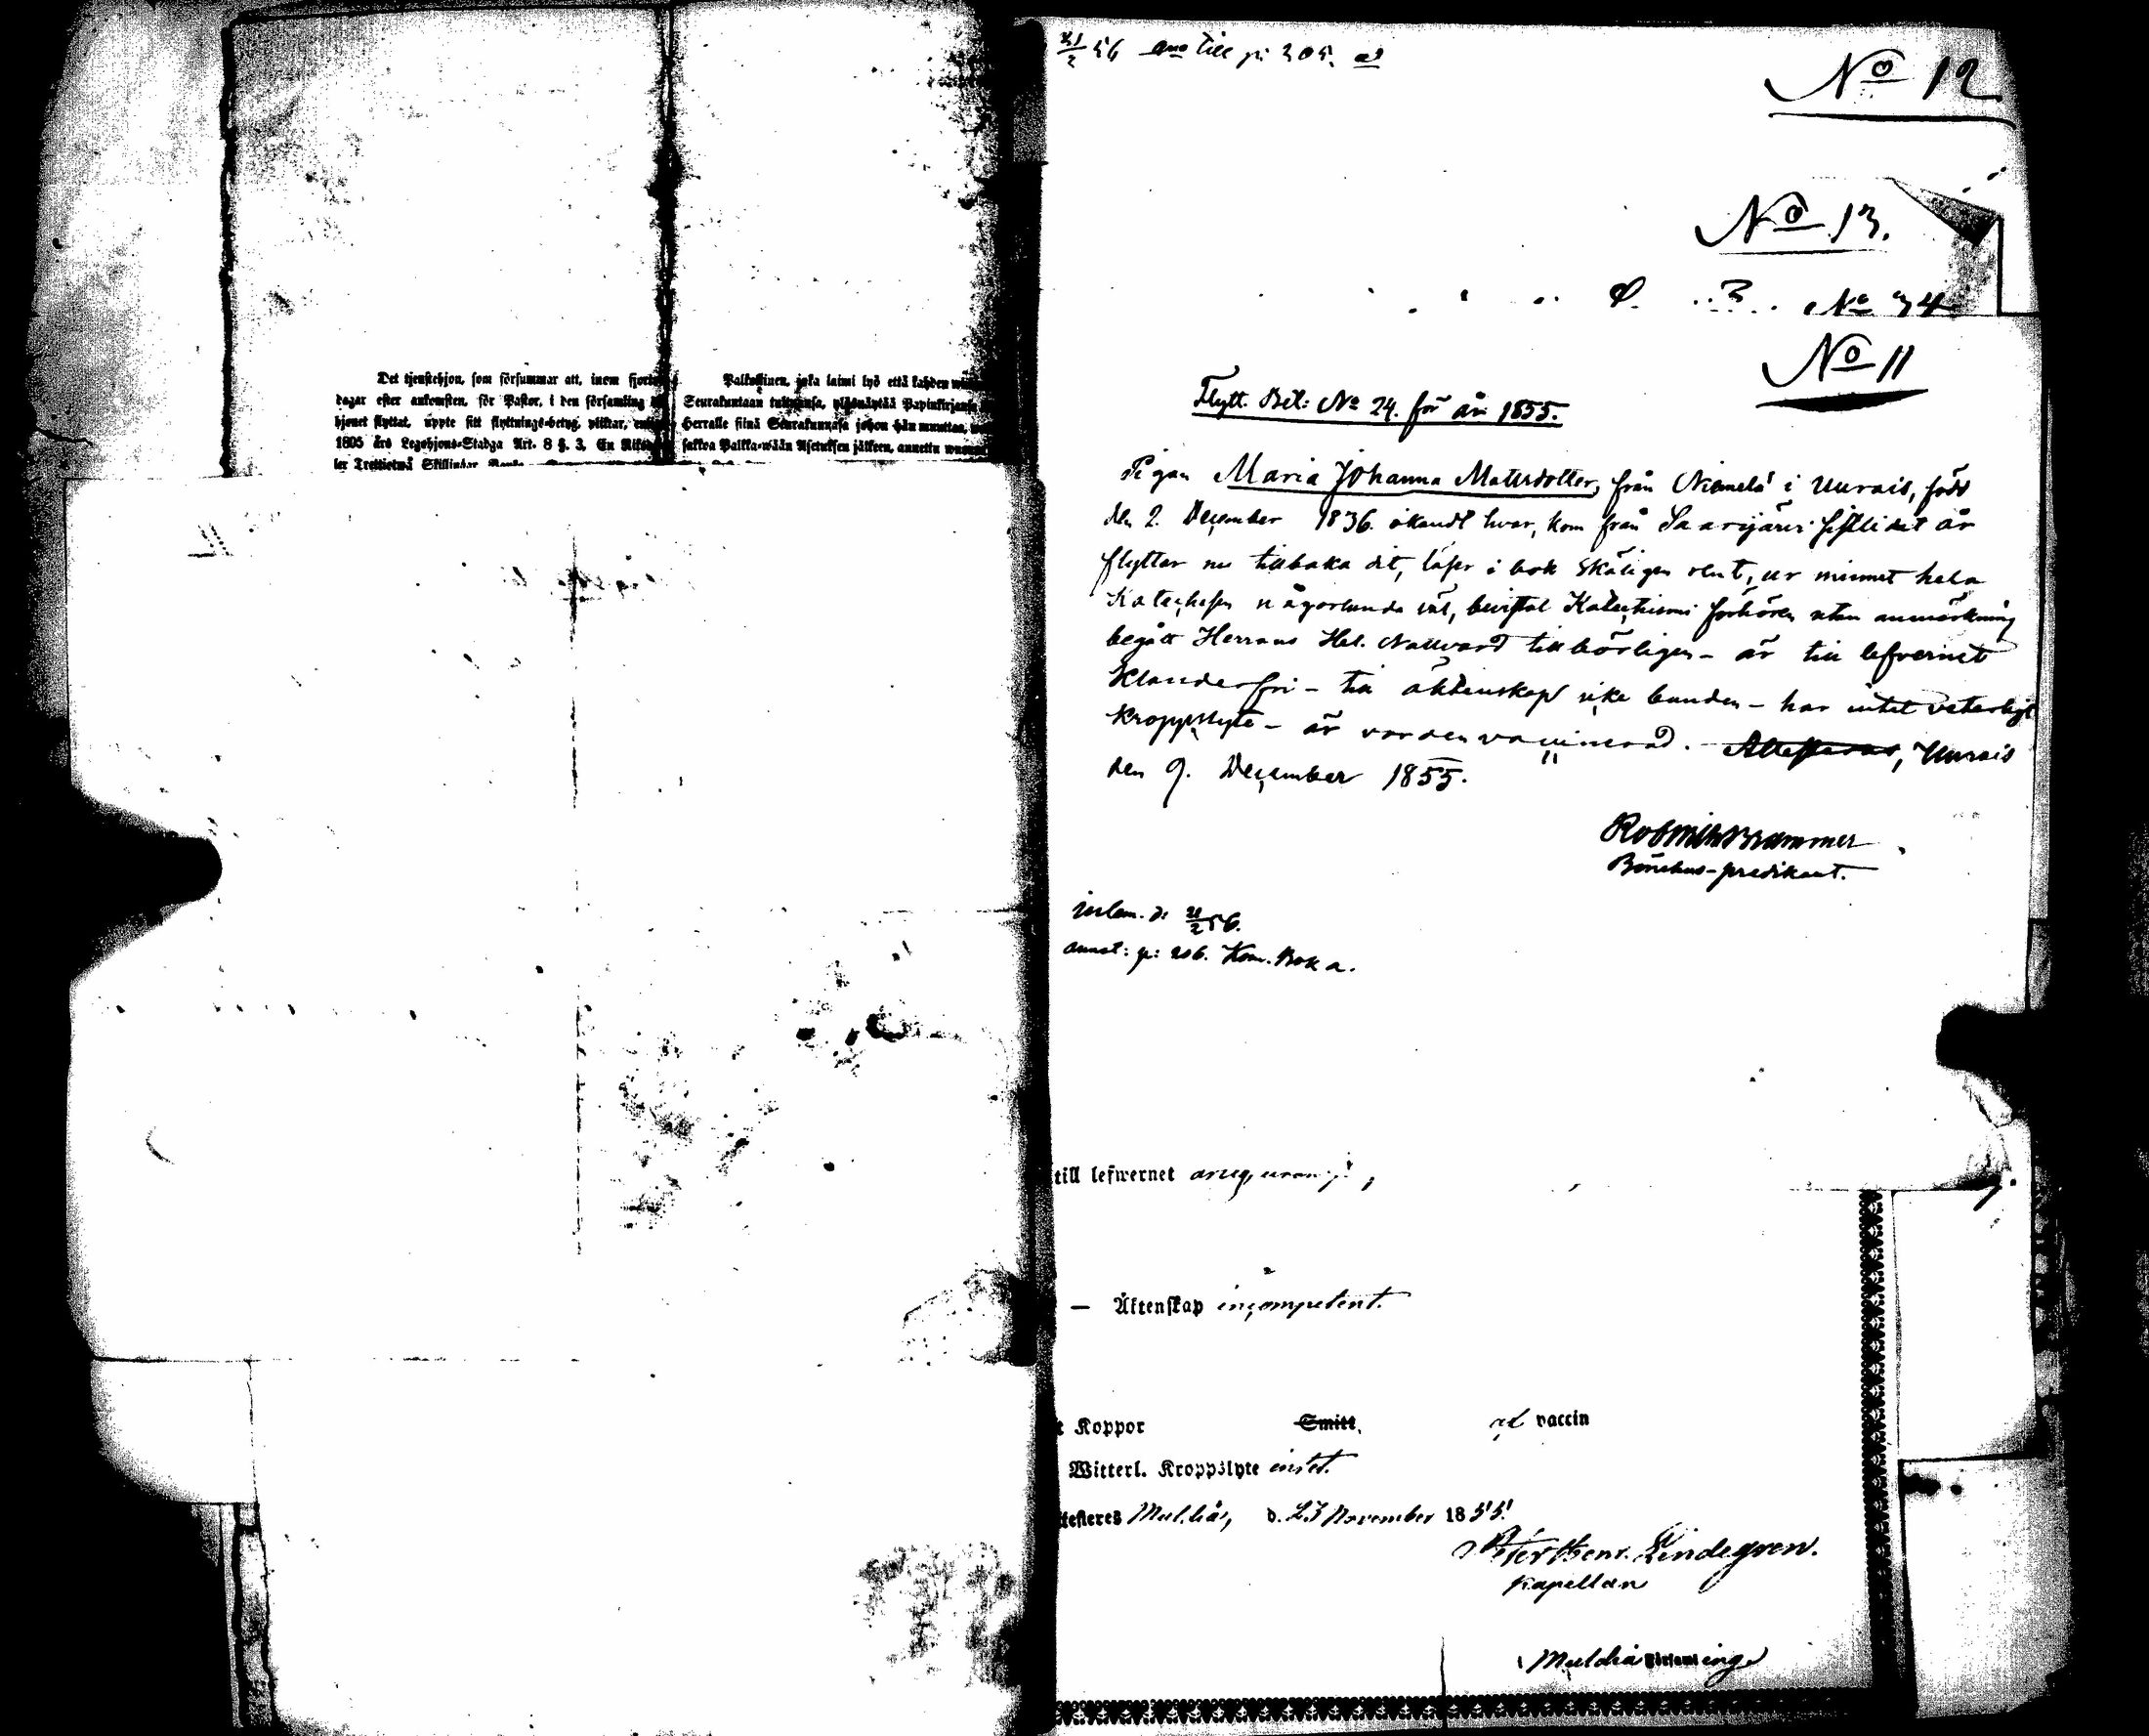 Det tjenstehjon, som försummar att, inom fjorton
dagar efter ankomsten, för Pastor, i den församling
hjonet flyttat, uppte sitt flyttnings-betyg, pliktar,
1805 års Legohjons-Stadga Art. 8 §. 3. En Riksd
ler Trettietwå Skillingar
Palkollinen, joka laimi lyö että kahden
Seurakuntaan tultuansa, ylösnäyttää Papinkirjansa
Herralle siinä Seurakunnasa johon hän muuttaa,
sakkoa Palka-wään Asetuksen jälkeen, annettu
21/2 56 ann till p: 205. a)
No 12
No 13.
No 34
No 11
Flytt. Bet: No 24. för år 1855.
Pigan Maria Johanna Matsdotter, från Niemelä i Uurais, född
den 2. December 1836. okändt hvar, kom från Saarijärvi sistlidet år
flyttar nu tillbaka dit, läser i bok skäligen rent, ur minnet hela
Katechesen någorlunda väl, bevistat Katechismi förhören utan anmärkning
begått Herrans Hel. Nattvard tillbörligen - är till lefvernet
Klanderfri - till äktenskap icke bunden - har intet veterligt
kroppslyte - är vorden vaccinerad. Attesteras, Uurais
den 9. December 1855.
Rob Wilh Brammer
Bönehus-predikant.
inlem. d: 21/2 56.
annot: p: 206. Kom. Bok a.
till lefwernet
— Äktenskap incompetent.
Koppor Smitt, vaccin
Witterl. Kroppslyte intet.
ttesteres Multia, d. 23 November 1855.
Peter Henr. Lindegren.
Kapellan
Multia Församling